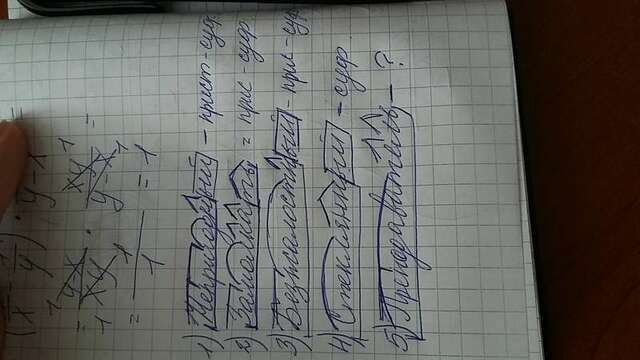 (1/x - 1/y) · xy/y-x =
= y-x/xy · xy/y-x =
= 1/1 = 1
1) Непригодный - прист-суф.
2) Замолкать = прис-суф
3) Безжалостный - прис-суф
4) Стеклянный - суф.
5) Преподаватель - ?